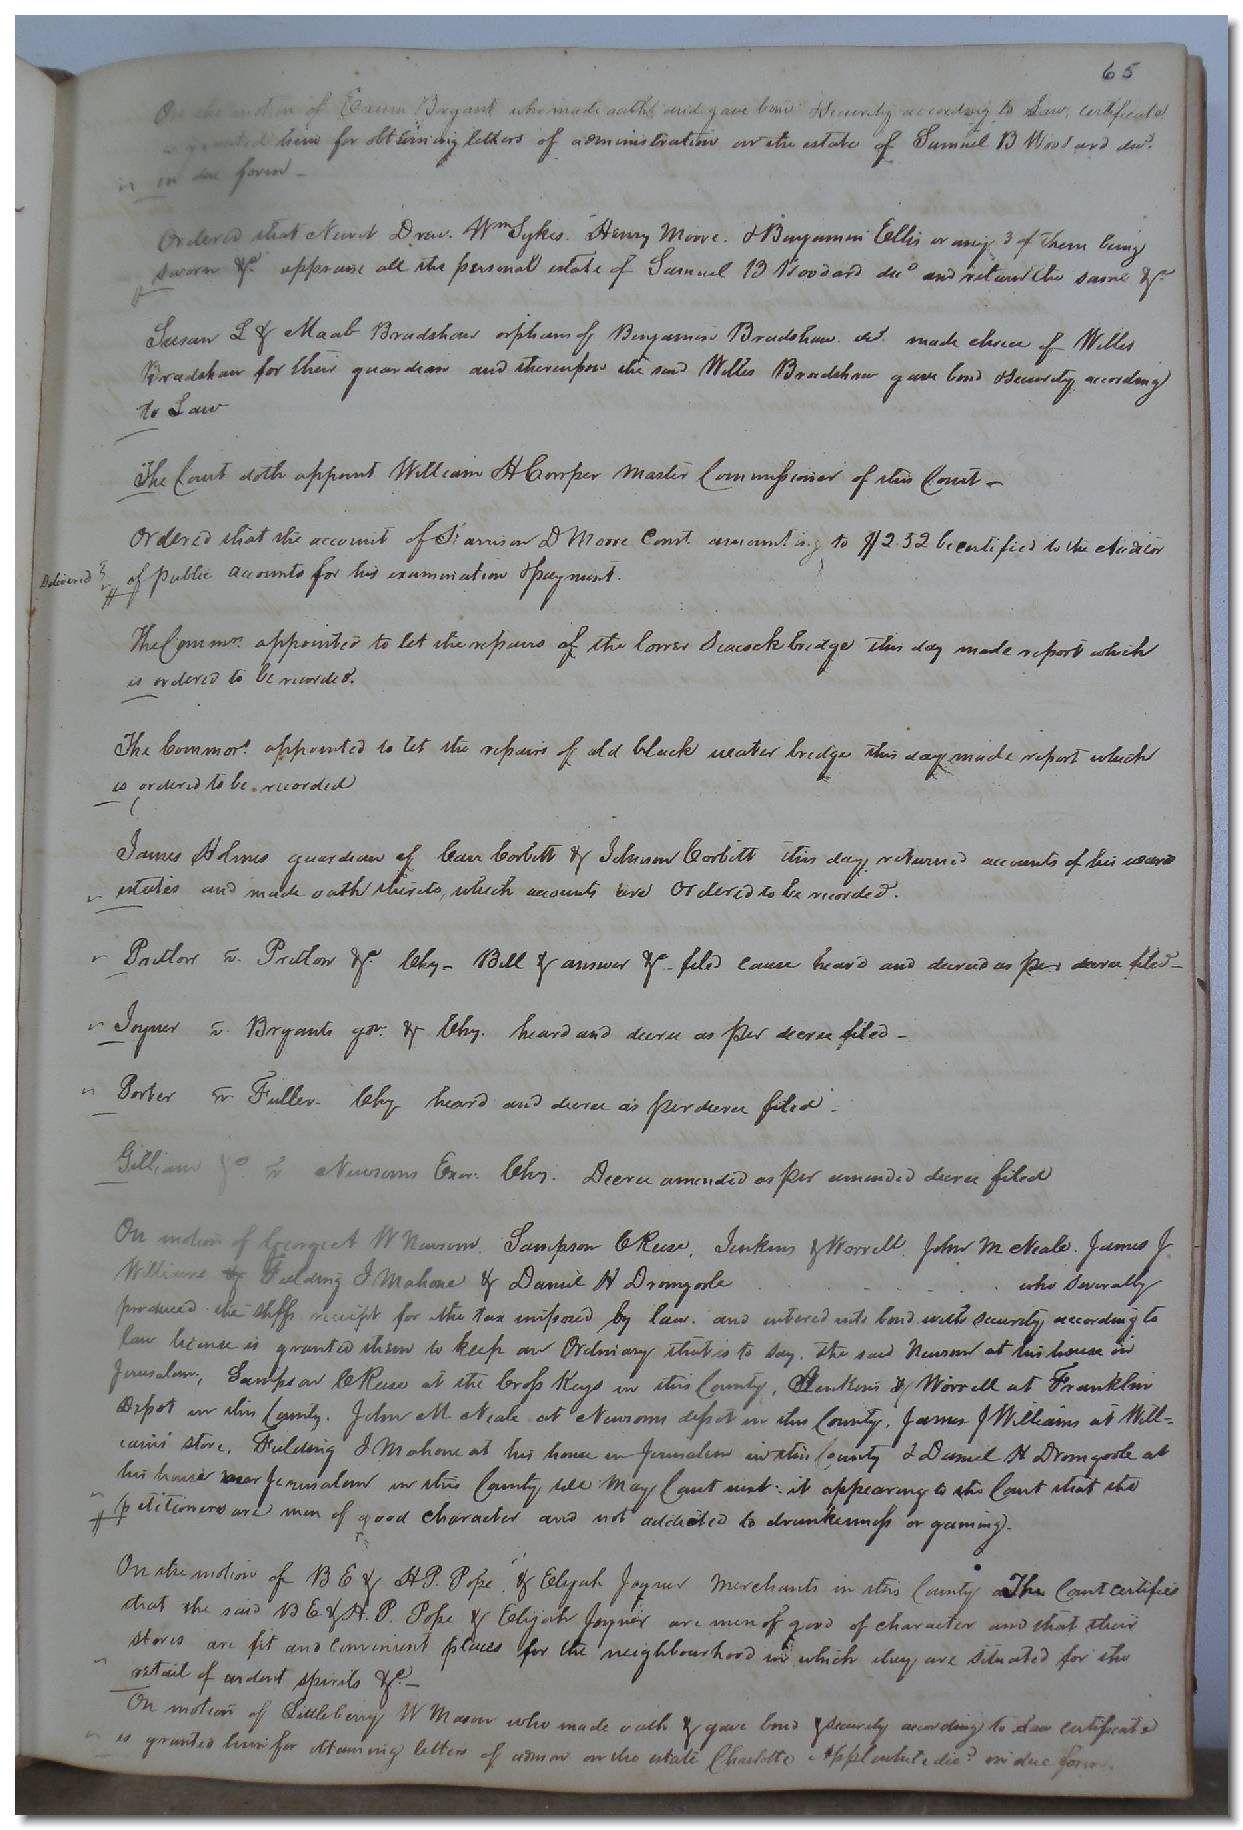 65
On the motion of Exum Bryant who made oath and gave bond & Security according to Law, certificate
is granted him for obtaining letters of administration on the estate of Samuel B Woodard decd.
in due form -
Ordered that Newit Drew. Wm Sykes. Henry Moore. & Benjamin Ellis or any 3 of them being
sworn &c appraise all the personal estate of Samuel B Woodard decd and return the same &c
Susan L & Maab Bradshaw orphans of Benjamin Bradshaw decd. made choice of Willis
Bradshaw for their guardian and thereupon the said Willis Bradshaw gave bond & Security according
to Law
The Court doth appoint William H Cowper Master Commissioner of this Court -
Ordered that the account of Harrison D Moore Const. amounting to $2.32 be certified to the Auditor
Delivered
of public accounts for his examination & payment.
The Commrs. appointed to let the repairs of the lower Seacock bridge this day made report which
is ordered to be recorded.
The Commors. appointed to let the repairs of old black water bridge this day made report which
is ordered to be recorded
James Holmes guardian of Corbitt & Johnson Corbitt this day returned accounts of his wards
estates and made oath thereto, which accounts are Ordered to be recorded.
Pretlow vs. Pretlow &c. Chy - Bill & answer &c - filed cause heard and decreed as per decree filed -
Joyner vs. Bryants &c Chy. heard and decree as per decree filed -
Porter vs. Fuller. Chy heard and decree as per decree filed -
Gilliam &c vs Newsoms Exor. Chy. Decree amended as per amended decree filed
On motion of George A W Newsom, Sampson C Reese, Jenkins & Worrell, John M Neale. James J
Williams Fielding J Mahone & Daniel H Dromgoole who severally
produced the shffs receipt for the tax imposed by law. and entered into bond with security according to
law license is granted them to keep an Ordinary that is to say. the said Newsom at his house in
Jerusalem, Sampson C Reese at the Cross Keys in this County, Jenkins & Worrell at Franklin
Depot in this County. John M Neale at Newsoms depot in this County, James J Williams at Will=
iams' store, Fielding J Mahone at his house in Jerusalem in this County & Daniel H Dromgoole at
his house near Jerusalem in this County till May Court next. it appearing to the Court that the
petitioners are men of good character and not addicted to drunkenness or gaming.
On the motion of B E & H P. Pope & Elijah Joyner Merchants in this County The Court certifies
that the said B E & H. P. Pope & Elijah Joyner are men of good of character and that their
stores are fit and convenient places for the neighbourhood in which they are situated for the
retail of ardent spirits &c -
On motion of Littleberry W Mason who made oath & gave bond & security according to law certificate
is granted him for obtaining letters of admon on the estate Charlotte Applewhite decd. in due form.